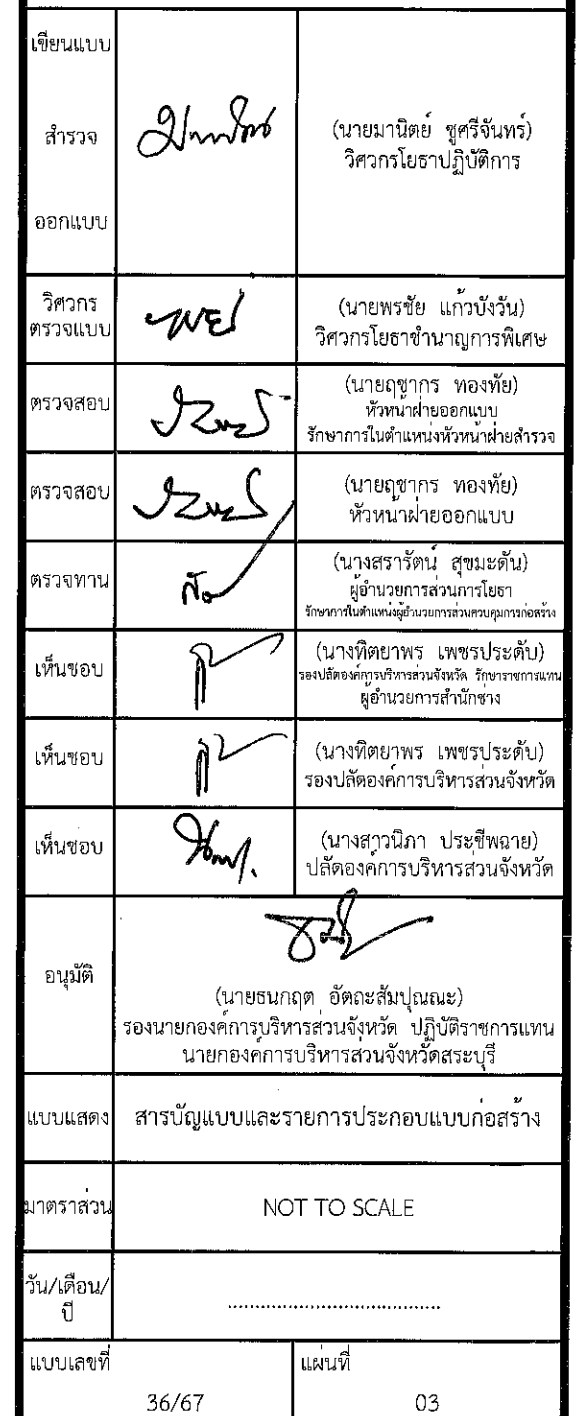 เขียนแบบ
สำรวจ
ออกแบบ
(นายมานิตย์ ชูศรีจันทร์)
วิศวกรโยธาปฏิบัติการ
วิศวกร
ตรวจแบบ
(นายพรชัย แก้วบังวัน)
วิศวกรโยธาชำนาญการพิเศษ
ตรวจสอบ
(นายฤชากร ทองทัย)
หัวหน้าฝ่ายออกแบบ
รักษาการในตำแหน่งหัวหน้าฝ่ายสำรวจ
ตรวจสอบ
(นายฤชากร ทองทัย)
หัวหน้าฝ่ายออกแบบ
ตรวจทาน
(นางสรารัตน์ สุขมะดัน)
ผู้อำนวยการส่วนการโยธา
รักษาการในตำแหน่งผู้อำนวยการส่วนควบคุมการก่อสร้าง
เห็นชอบ
(นางทิตยาพร เพชรประดับ)
รองปลัดองค์การบริหารส่วนจังหวัด รักษาราชการแทน
ผู้อำนวยการสำนักช่าง
เห็นชอบ
(นางทิตยาพร เพชรประดับ)
รองปลัดองค์การบริหารส่วนจังหวัด
เห็นชอบ
(นางสาวนิภา ประชีพฉาย)
ปลัดองค์การบริหารส่วนจังหวัด
อนุมัติ
(นายธนกฤต อัตถะสัมปุณณะ)
รองนายกองค์การบริหารส่วนจังหวัด ปฏิบัติราชการแทน
นายกองค์การบริหารส่วนจังหวัดสระบุรี
แบบแสดง
สารบัญแบบและรายการประกอบแบบก่อสร้าง
มาตราส่วน
NOT TO SCALE
วัน/เดือน/
ปี
....................................
แบบเลขที่
36/67
แผ่นที่
03